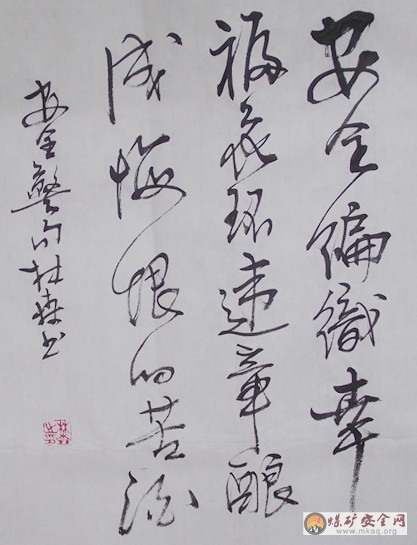 安全编織幸
福花环違章酿
成悔恨的苦酒
安全警句林森书
煤矿安全网
www.mkaq.org